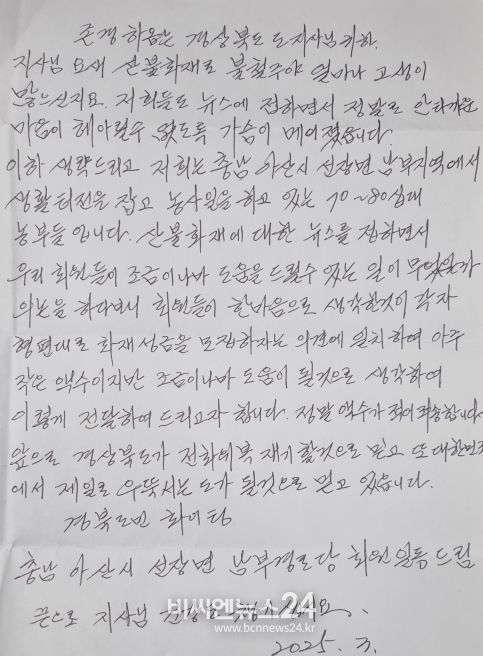 존경하옵는 경상북도 도지사님 귀하.
지사님 요새 산불화재로 불철주야 얼마나 고생이
많으신지요. 저희들도 뉴스에 접하면서 정말로 안타까운
마음이 헤아릴수 없도록 가슴이 메어졌습니다.
이하 생략드리고 저희는 충남 아산시 선장면 남부지역에서
생활터전을 잡고 농사일을 하고 있는 70~80십대
농부들 입니다. 산불화재에 대한 뉴스를 접하면서
우리 회원들이 조금이나마 도움을 드릴수 있는 일이 무엇일까
의논을 하다보니 회원들이 한마음으로 생각한것이 각자
형편대로 화재성금을 모집하자는 의견에 일치하여 아주
작은 액수이지만 조금이나마 도움이 될것으로 생각하여
이렇게 전달하여 드리고자 합니다. 정말 액수가 적어 죄송합니다.
앞으로 경상북도가 전화위복 재기할것으로 믿고 또 대한민국
에서 제일로 우뚝서는 도가 될것으로 믿고 있습니다.
경북도민 화이팅
충남 아산시 선장면 남부경로당 회원일동 드림
끝으로 지사님 건강을
비씨엔뉴스24
www.bcnnews24.kr
2025. 3.